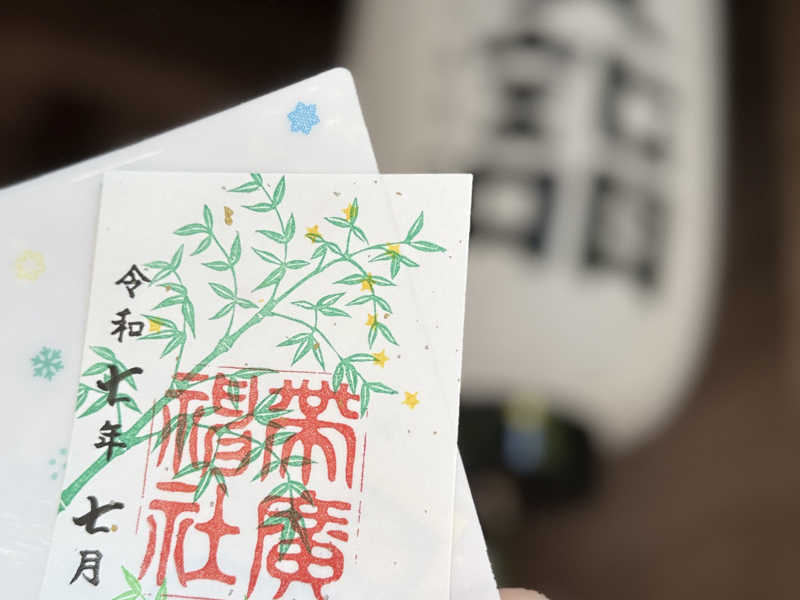 帶廣
神社
令和七年七月